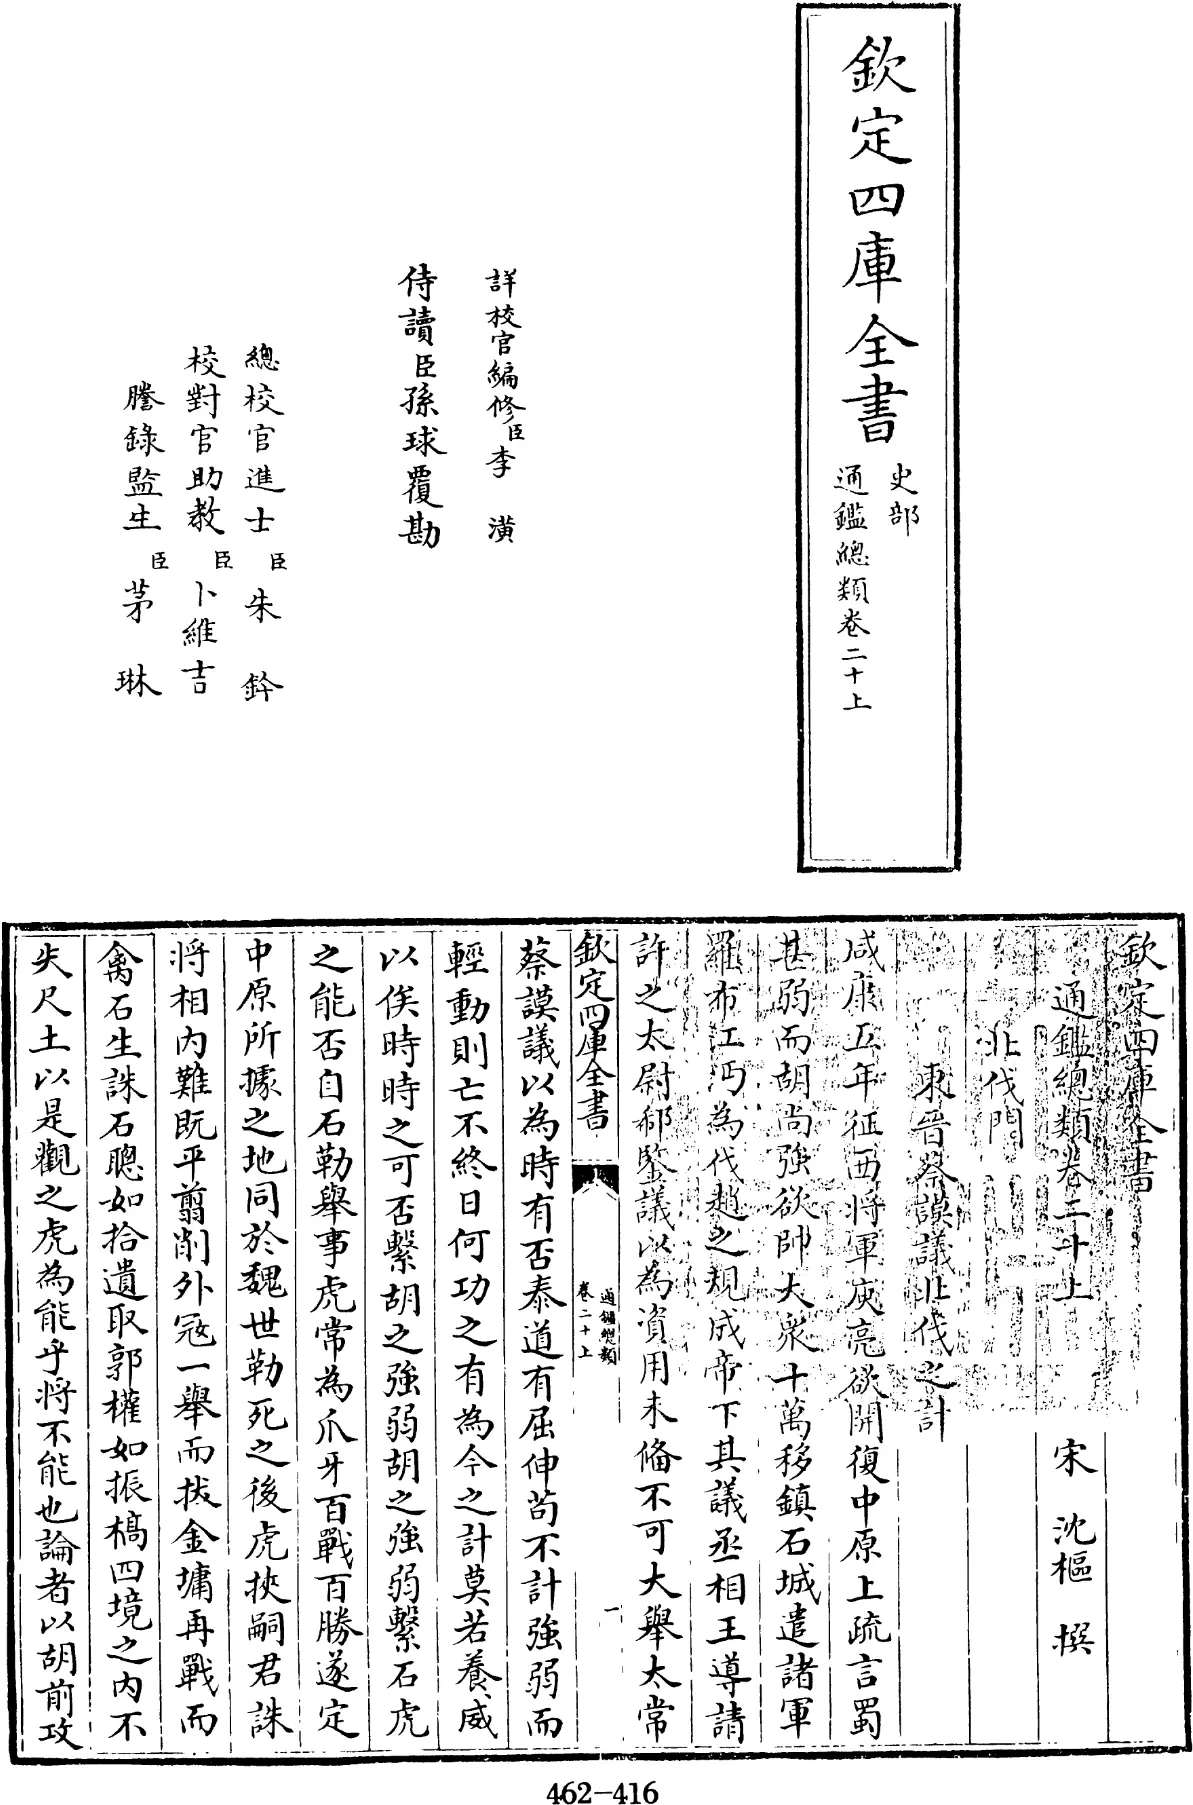 欽定四庫全書
史部
通鑑總類卷二十上
詳校官編修臣李潢
侍讀臣孫球覆勘
總校官進士臣朱鈐
校對官助教臣卜維吉
謄錄監生臣茅琳
欽定四庫全書
通鑑總類卷二十上
宋 沈樞 撰
北伐門
東晉蔡謨議北伐之計
咸康五年征西將軍庾亮欲開復中原上疏言蜀
甚弱而胡尚強欲帥大衆十萬移鎮石城遣諸軍
羅布江沔為伐趙之規成帝下其議丞相王導請
許之太尉郗鑒議以為資用未備不可大舉太常
欽定四庫全書
通鑑總類
卷二十上
一
蔡謨議以為時有否泰道有屈伸茍不計強弱而
輕動則亡不終日何功之有為今之計莫若養威
以俟時時之可否繫胡之強弱胡之強弱繫石虎
之能否自石勒舉事虎常為爪牙百戰百勝遂定
中原所據之地同於魏世勒死之後虎挾嗣君誅
將相內難既平翦削外寇一舉而拔金墉再戰而
禽石生誅石聰如拾遺取郭權如振槁四境之内不
失尺土以是觀之虎為能乎將不能也論者以胡前攻
462-416